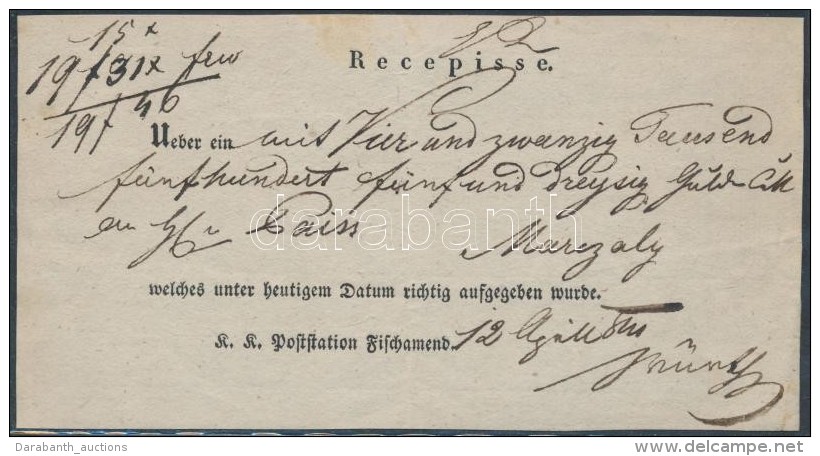 15 x
19 f 31 x frco
19 f 46
Recepisse.
Ueber ein mit Vier und zwanzig Tausend
fünfhundert fünf und dreysig Guld CM
an Hr Paiss Marczaly
welches unter heutigem Datum richtig aufgegeben wurde.
K. K. Poststation Fischamend. 12 April
darabanth
Darabanth_auctions
www.delcampe.net